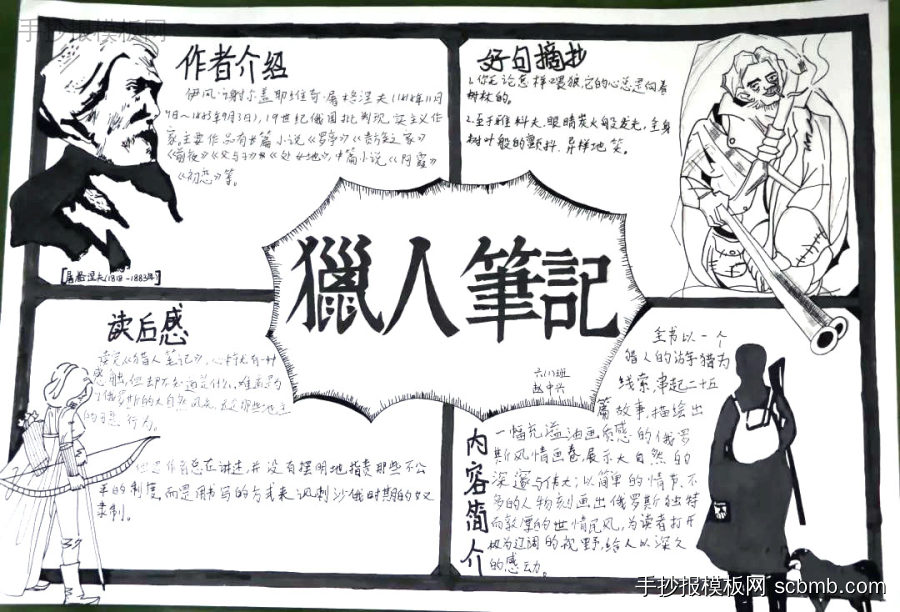 手抄报模板网
作者介绍
伊凡·谢尔盖耶维奇·屠格涅夫(1818年11月
9日～1883年9月3日),19世纪俄国批判现实主义作
家。主要作品有长篇小说《罗亭》《贵族之家》
《前夜》《父与子》《处女地》,中篇小说《阿霞》
《初恋》等。
屠格涅夫(1818-1883年)
好句摘抄
1.你无论怎样喂狼,它的心总是向着
树林的。
2.至于雅科夫,眼睛炭火般发光,全身
树叶般的颤抖,异样地笑。
獵人筆記
六(1)班
赵中兴
读后感
读完《猎人笔记》,心持有一种
感触,但却不知道是什么,难道是为
了俄罗斯的大自然风光,
的 行为。
作者总在讲述,并没有摆明地指责那些不公
平的制度,而是用书写的方式来讽刺沙俄时期的奴
隶制。
内容简介
全书以一个
猎人的访字猎为
线索,串起二十五
篇故事,描绘出
一幅充溢油画质感的俄罗
斯风情画卷,展示大自然的
深邃与伟大;以简单的情节、不
多的人物刻画出俄罗斯独特
而敦厚的世情民风,为读者打开
极为辽阔的视野,给人以深久
的感动。
手抄报模板网 scbmb.com